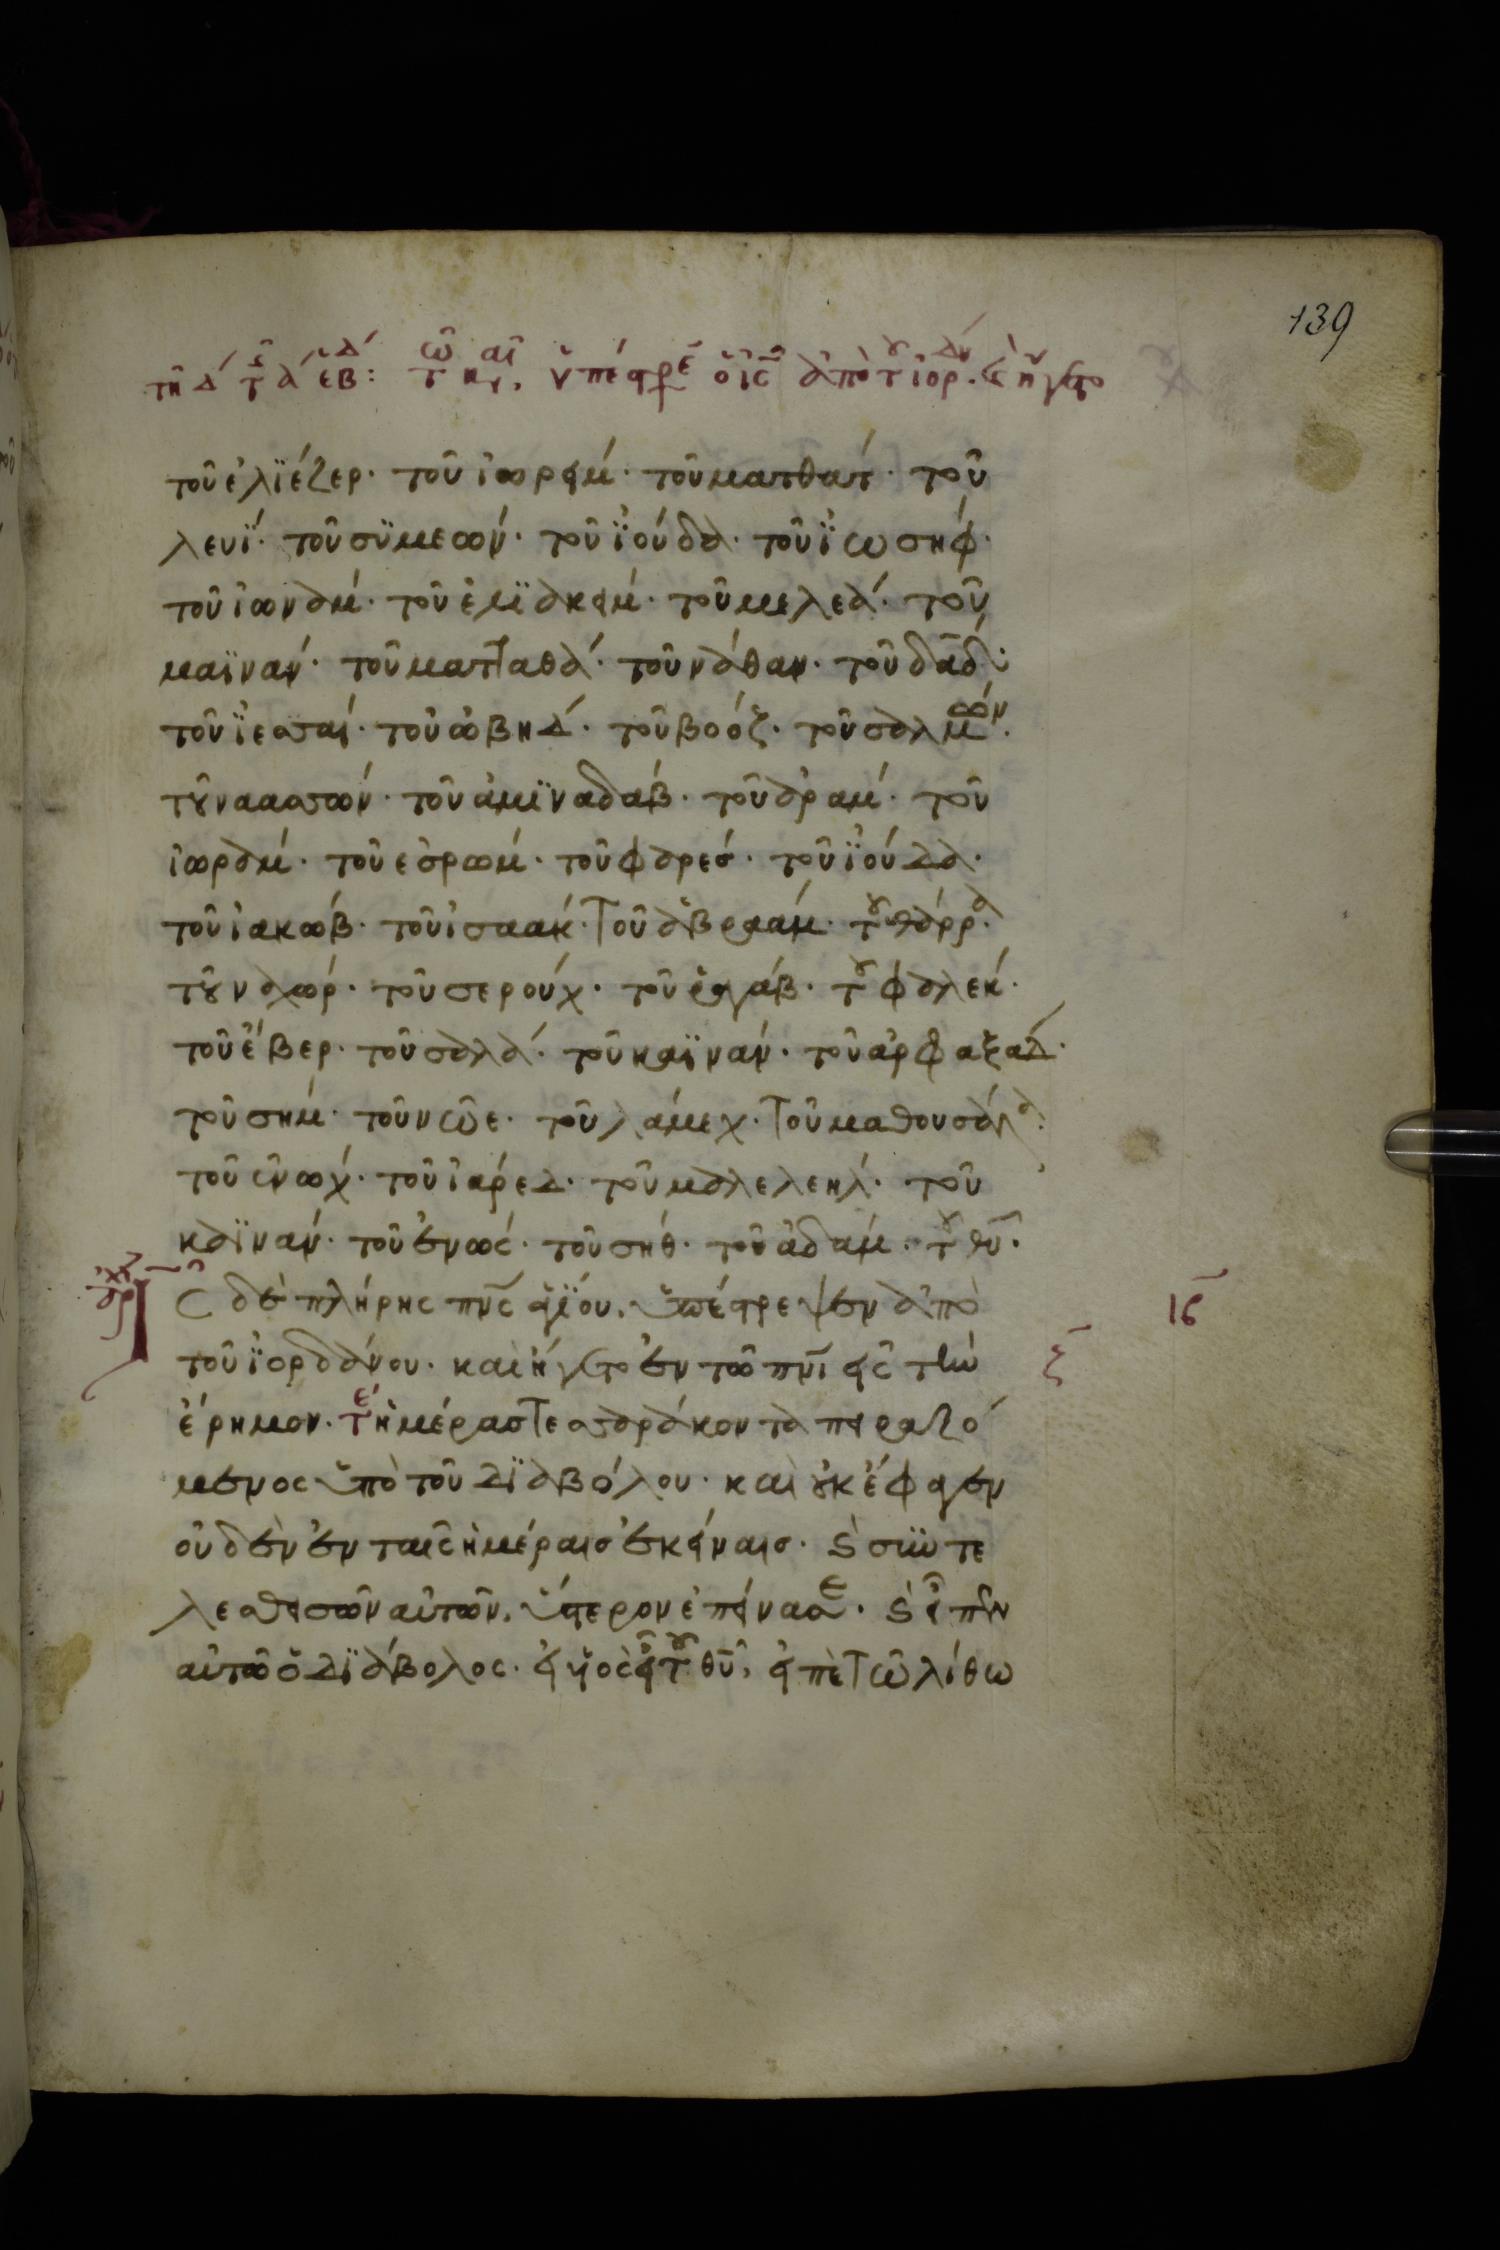 139
τῆ δ τ α ἑβδ: τω καιρ, ὑπέστρε ὁ ις ἀπὸ τοῦ ιορδαν. καὶ ἤγετο
τοῦ ἐλϊέζερ· τοῦ ἰωρείμ· τοῦ ματθατ· τοῦ
λευϊ· τοῦ συμεών· τοῦ ϊούδα· τοῦ ϊωσηφ·
τοῦ ἰωνάμ· τοῦ ἐλϊακείμ· τοῦ μελεά· τοῦ
μαϊνάν· τοῦ ματταθά· τοῦ νάθαν· τοῦ δαδ·
τοῦ ϊεσσαί· τοῦ ὠβήδ· τοῦ βοόζ· τοῦ σαλμών·
τοῦ ναασσών· τοῦ ἀμϊναδάβ· τοῦ ἀράμ· τοῦ
ἰωράμ· τοῦ ἐσρώμ· τοῦ φαρές· τοῦ ϊούδα·
τοῦ ἰακώβ· τοῦ ἰσαάκ· τοῦ ἀβραάμ· τοῦ θάρρα·
τοῦ ναχώρ· τοῦ σερούχ· τοῦ ῥαγάβ· τοῦ φαλέκ·
τοῦ ἔβερ· τοῦ σαλά· τοῦ καϊνάν· τοῦ ἀρφαξάδ·
τοῦ σήμ· τοῦ νῶε· τοῦ λάμεχ· τοῦ μαθουσάλα·
τοῦ ἐνώχ· τοῦ ἰάρεδ· τοῦ μαλελεήλ· τοῦ
καϊνάν· τοῦ ἐνώς· τοῦ σήθ· τοῦ ἀδάμ· τοῦ θυ·
ἀρχ Ις δὲ πλήρης πνς ἁγϊου, ὑπέστρεψεν ἀπὸ ιϛ
τοῦ ϊορδάνου· καὶ ἤγετο ἐν τῶ πνι εἰς τὴν ζ
ἔρημον· τέ ἡμέρας τεσσαράκοντα πειραζό
μενος ὑπὸ τοῦ δϊαβόλου· καὶ οὐκ ἔφαγεν
οὐδὲν ἐν ταῖς ἡμέραις ἐκείναις· καὶ συντε
λεσθεισῶν αὐτῶν, ὕστερον ἐπείνασε· καὶ εἶπεν
αὐτῶ ὁ δϊάβολος· εἰ υἱὸς εἶ τοῦ θυ, εἰπὲ τῶ λίθω